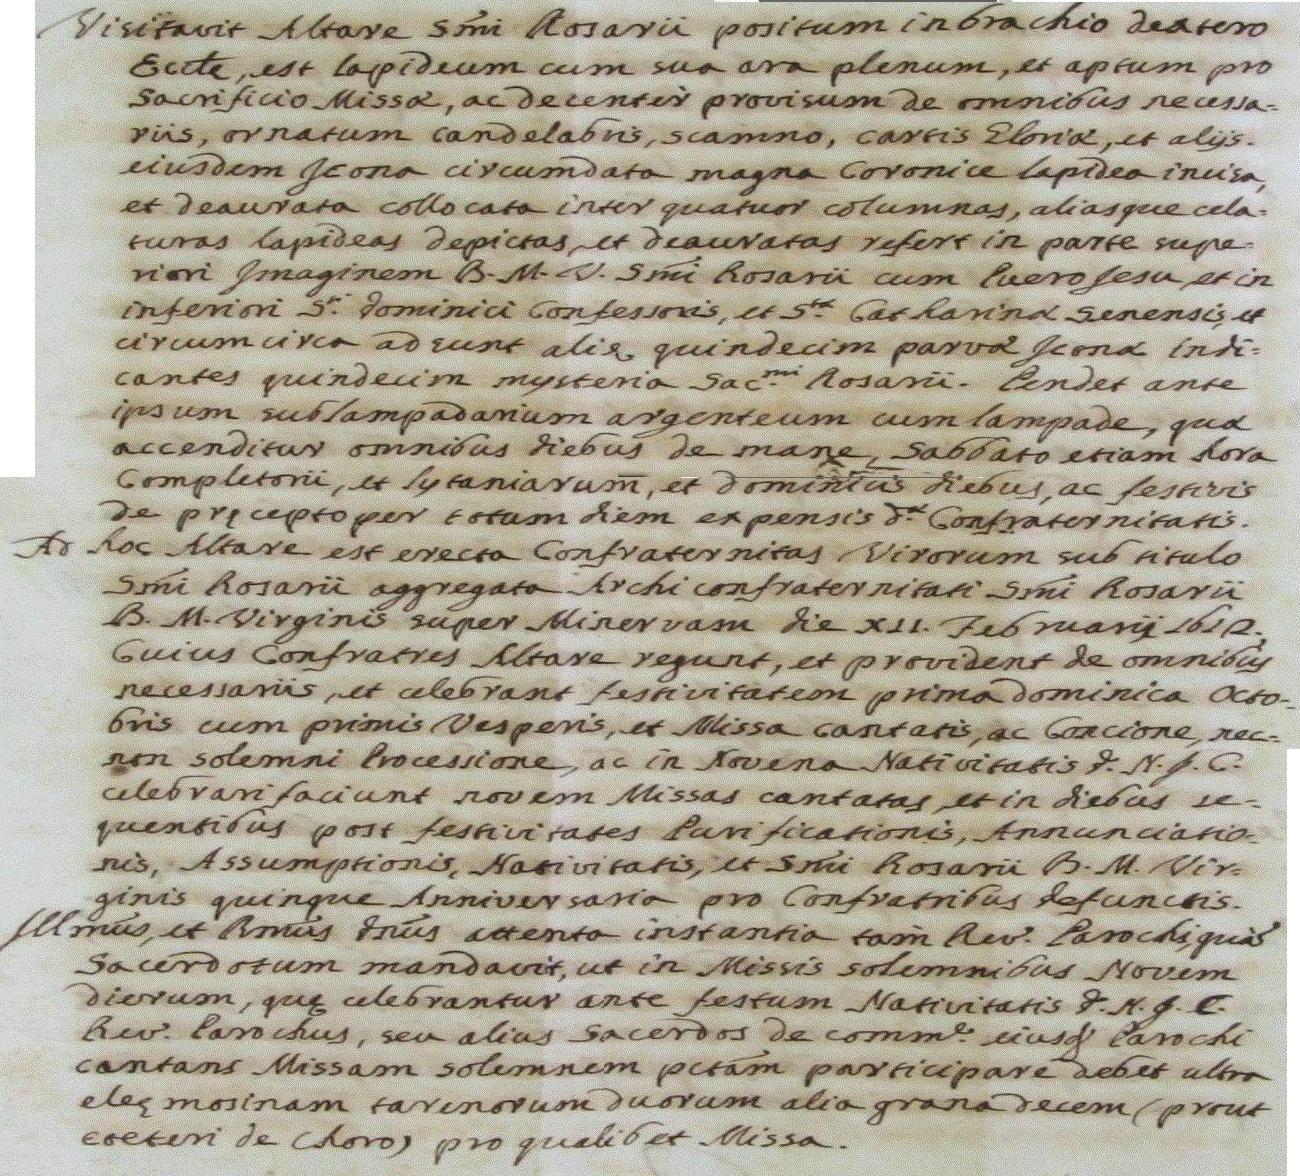 Visitavit Altare Smi Rosarii positum in brachio dextero
Eccle, est lapideum cum sua ara plenum, et aptum pro
Sacrificio Missæ, ac decenter provisum de omnibus necessa-
riis, ornatum candelabris, scamno, cartis Gloriæ, et alijs.
eiusdem Icona circumdata magna Coronice lapidea incisa,
et deaurata collocata inter quatuor columnas, aliasque cela-
turas lapideas depictas, et deauratas refert in parte supe-
riori Imaginem B. M. V. Smi Rosarii cum Puero Jesu, et in
inferiori Sti. Dominici Confessoris, et Stæ. Catharinæ Senensis, et
circumcirca adsunt alię quindecim parvæ Iconæ indi-
cantes quindecim mysteria Sac.mi Rosarii. Pendet ante
ipsum sublampadarium argenteum cum lampade, quæ
accenditur omnibus diebus de mane, Sabbato etiam hora
Completorii, et lytaniarum, et dominicis diebus, ac festivis
de pręcepto per totum diem expensis d.æ Confraternitatis.
Ad hoc Altare est erecta Confraternitas Virorum sub titulo
Smi Rosarii aggregata Archiconfraternitati Smi Rosarii
B. M. Virginis super Minervam die XII. Februarij 1612.,
Cuius Confratres Altare regunt, et provident de omnibus
necessariis, et celebrant festivitatem prima dominica Octo-
bris cum primis Vesperis, et Missa cantatis, ac Concione, nec-
non solemni Processione, ac in Novena Nativitatis d. N. J. C.
celebrari faciunt novem Missas cantatas, et in diebus se-
quentibus post festivitates Purificationis, Annunciatio-
nis, Assumptionis, Nativitatis, et Smi Rosarii B. M. Vir-
ginis quinque Anniversaria pro Confratribus defunctis.
Illmus, et Rmus dnus attenta instantia tam Rev. Parochi, quam
Sacerdotum mandavit, ut in Missis solemnibus Novem
dierum, quę celebrantur ante festum Nativitatis d. N. J. C.
Rev. Parochus, seu alius Sacerdos de comm.e eiusd Parochi
cantans Missam solemnem pctam participare debet ultra
eleęmosinam tarenorum duorum alia grana decem (prout
ceteri de Choro) pro qualibet Missa.